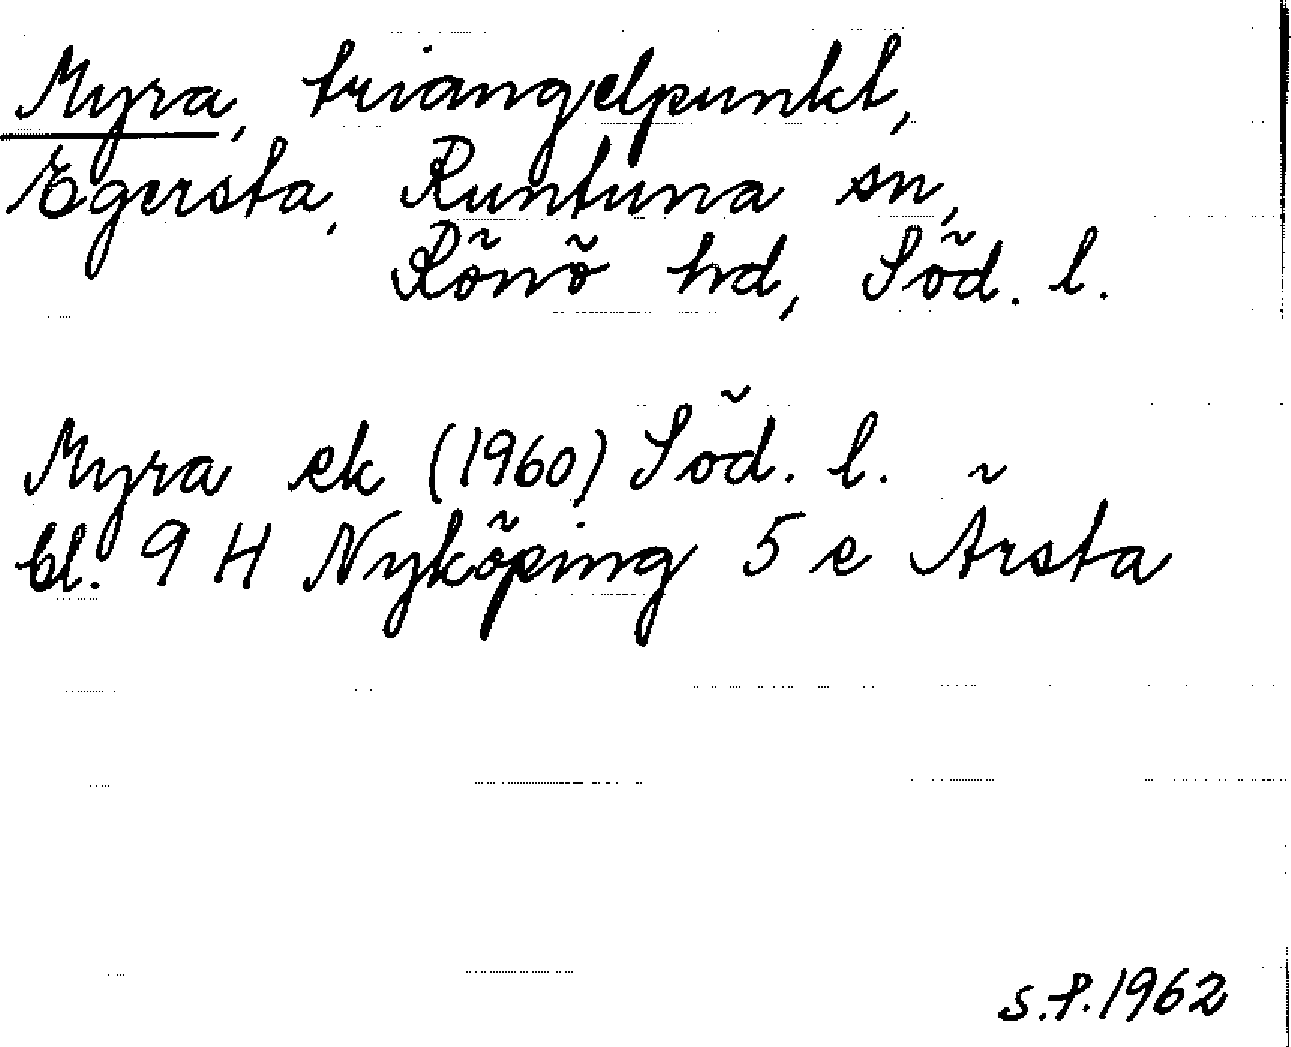 Myra, triangelpunkt,
Egersta, Runtuna sn,
Rönö hd, Söd. l.
Myra ek (1960) Söd. l.
bl. 9 H Nyköping 5 e Årsta
s.f. 1962